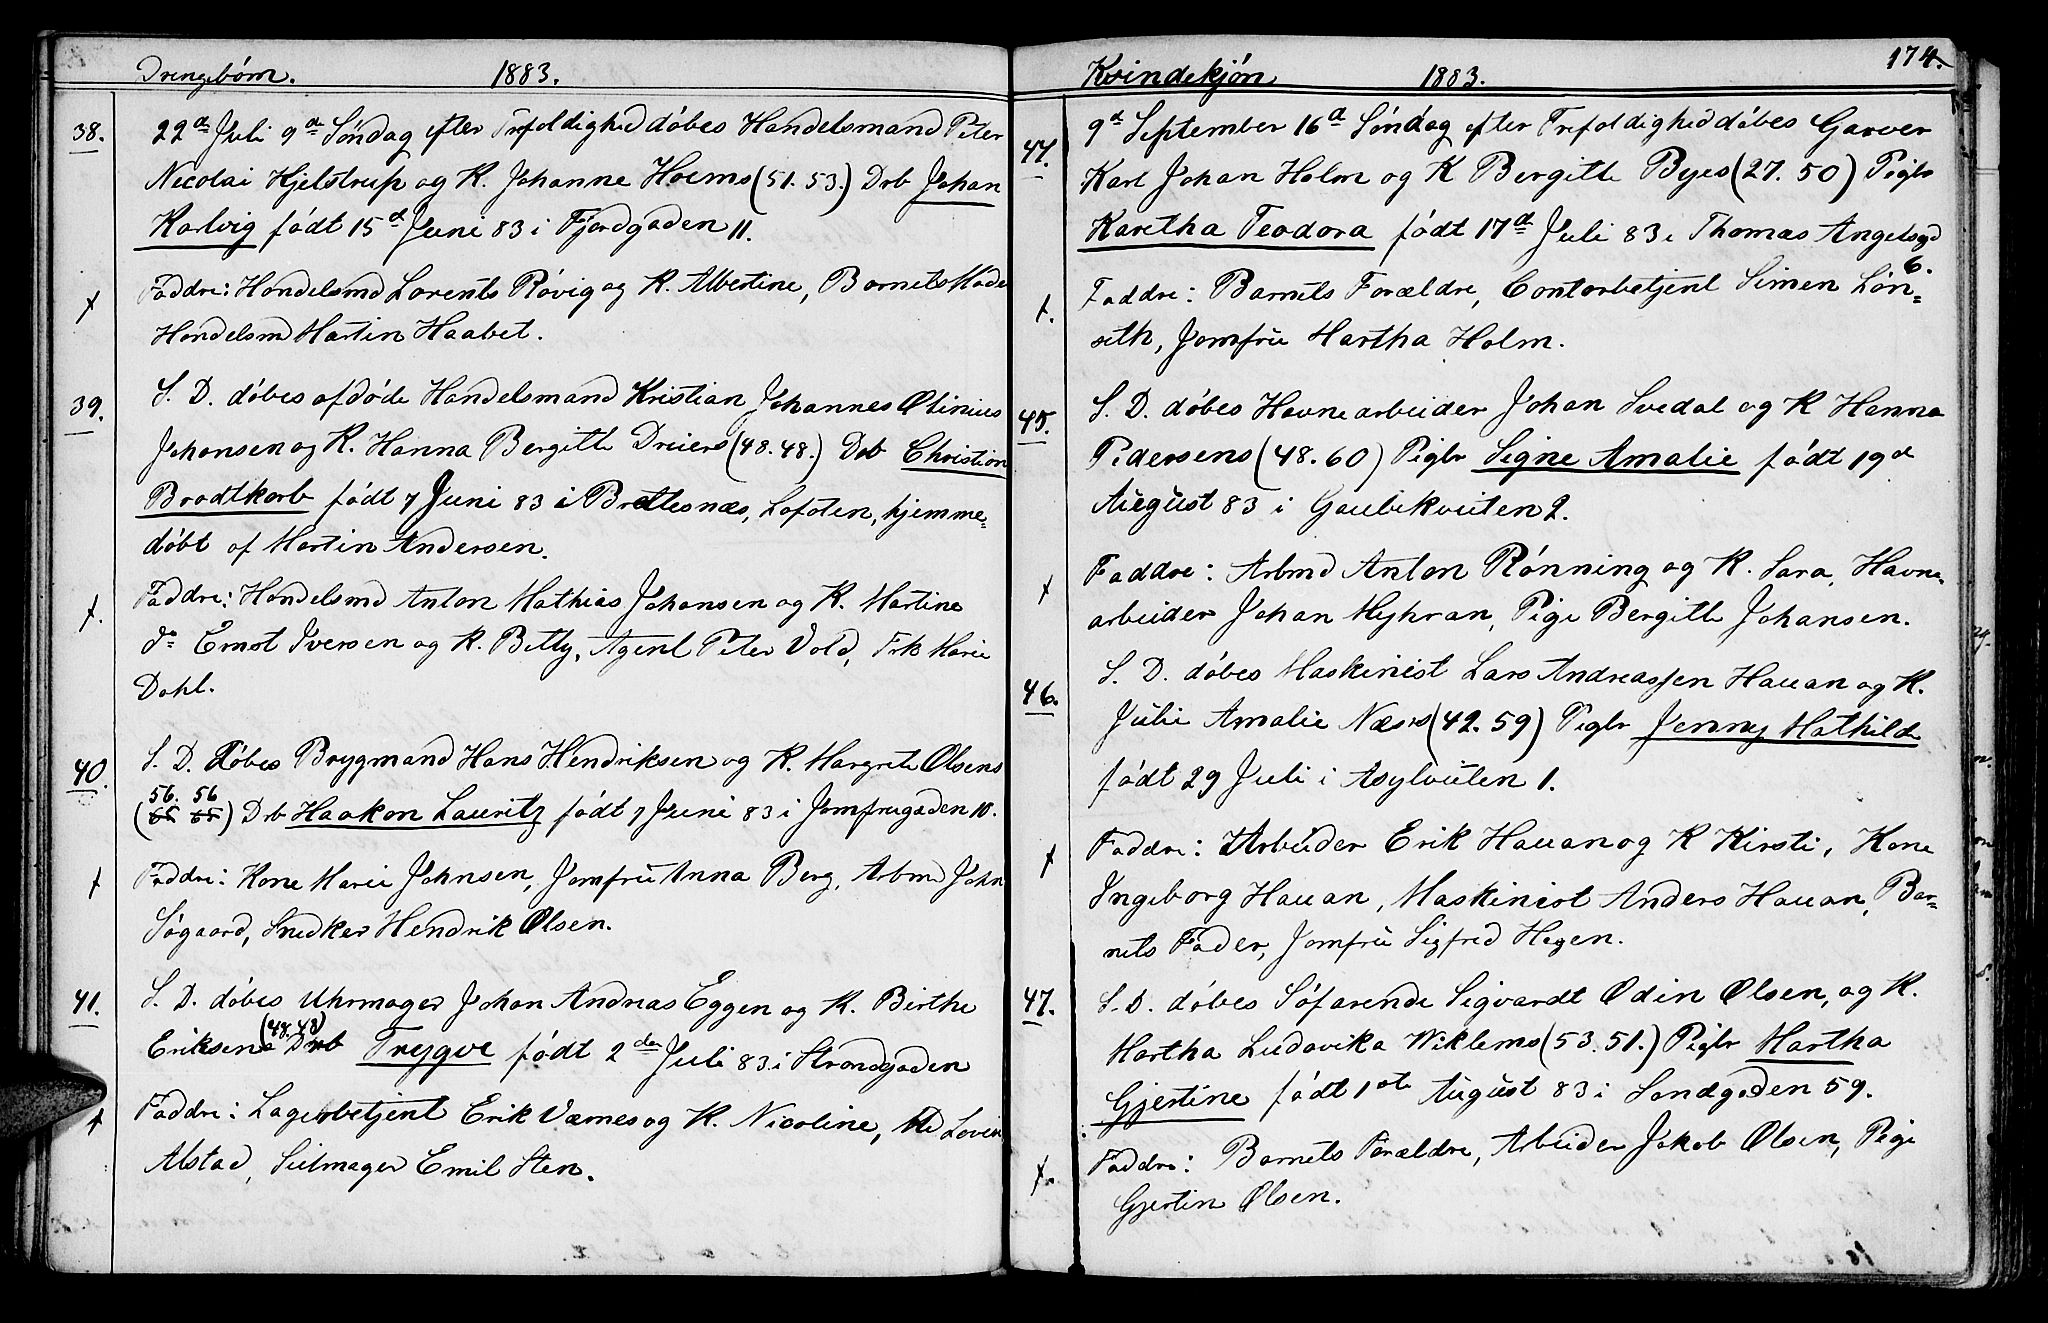 Drengebörn. 1883.
38. 22de Juli 9de Söndag efter Trefoldighed döbes Handelsmand Peter
Nicolai Hjelstrup og K. Johanne Hoems (51. 53.) Drb Johan
Harlvig födt 15d Juni 83 i Fjordgaden 11.
Faddre: Handelsmd Lorents Rövig og K. Albertine, Barnets Moder
Handelsmd Martin Haabet.
39. S. D. döbes afdöde Handelsmand Kristian Johannes Olinius
Johansen og K. Hanna Bergitte Dreiers (48. 48.) Drb Christian
Brodtkorb födt 7 Juni 83 i Brettesnæs, Lofoten, hjemme-
döbt af Martin Andersen.
Faddre: Handelsmd Anton Mathias Johansen og K. Martine
do Ernst Iversen og K. Betty, Agent Peter Vold, Frk Marie
Dahl.
40. S. D. döbes Brygmand Hans Hendriksen og K. Margrete Olsens
(56. 56) Drb Haakon Lauritz födt 7 Juni 83 i Jomfrugaden 10.
Faddre: Kone Marie Johnsen, Jomfru Anna Berg, Arbmd John
Sögaard, Snedker Hendrik Olsen.
41. S. D. döbes Uhrmager Johan Andreas Eggen og K. Birthe
Eriksens (48. 48) Drb Trygve födt 2den Juli 83 i Strandgaden
Faddre: Lagerbetjent Erik Værnes og K. Nicoline, Md Lovise
Alstad, Seilmager Emil Sten.
Kvindekjön 1883. 174.
44. 9d September 16d Söndag efter Trefoldighed döbes Garver
Karl Johan Holm og K Bergitte Byes (27. 50) Pigbr
Karetha Teodora födt 17d Juli 83 i Thomas Angelsgd
6.
Faddre: Barnets Forældre, Contorbetjent Simen Lön-
seth, Jomfru Martha Holm.
45. S. D. döbes Havnearbeider Johan Svedal og K Hanna
Pedersens (48. 60) Pigbr Signe Amalie födt 19d
August 83 i Gaubekveiten 2.
Faddre: Arbmd Anton Rönning og K. Sara, Havne-
arbeider Johan Myhran, Pige Bergitte Johansen.
46. S. D. döbes Maskinist Lars Andreassen Hauan og K.
Julie Amalie Næss (42. 59) Pigbr Jenny Mathilde
födt 29 Juli i Asylveiten 1.
Faddre: Arbeider Erik Hauan og K Kirsti, Kone
Ingeborg Hauan, Maskinist Anders Hauan, Bar-
nets Fader, Jomfru Sigfred Hegen.
47. S. D. döbes Söfarende Sigvardt Odin Olsen, og K.
Martha Ludovika Wiklems (53. 51.) Pigbr Martha
Gjertine födt 1ste August 83 i Sandgaden 59.
Faddre: Barnets Forældre, Arbeider Jakob Olsen, Pige
Gjertin Olsen.